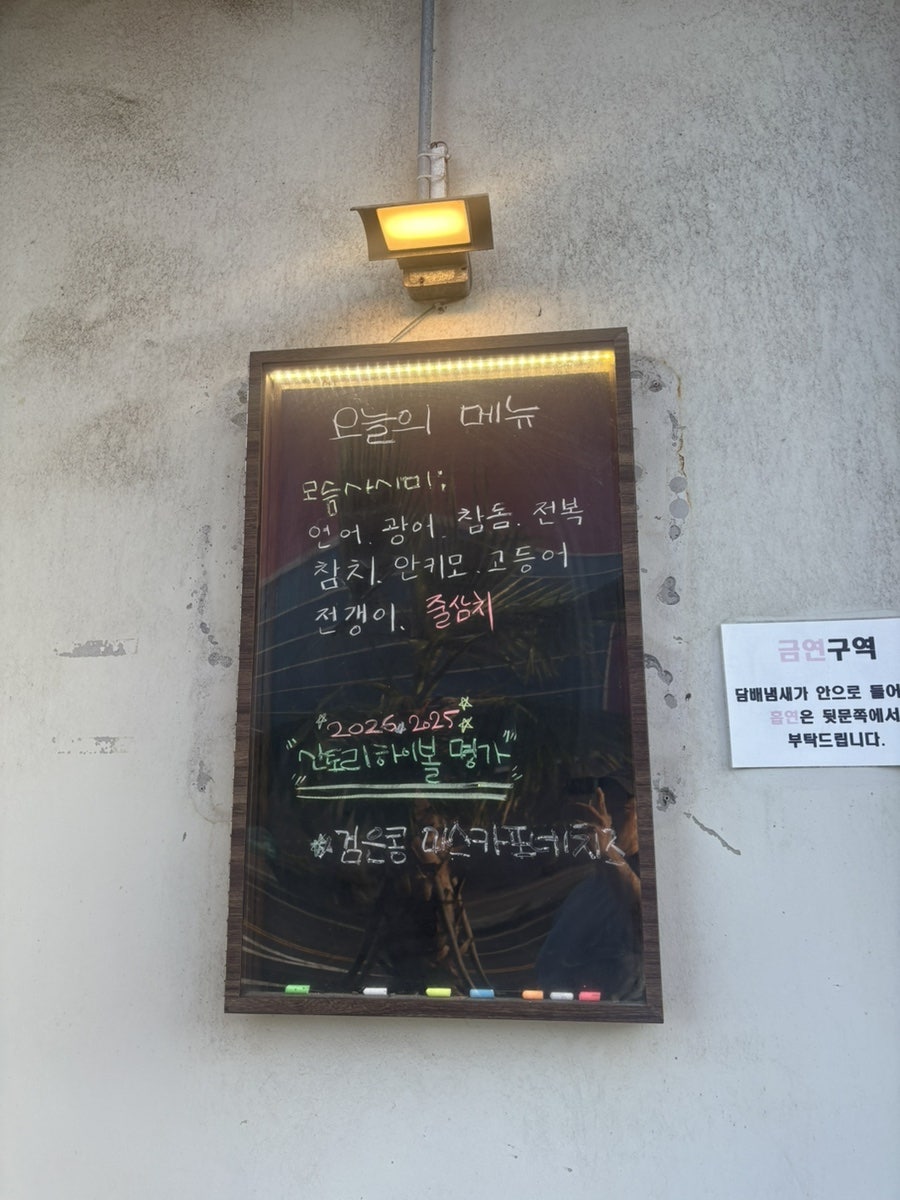 오늘의 메뉴
모듬사시미:
연어. 광어. 참돔. 전복
참치. 안키모. 고등어
전갱이. 줄삼치
2026. 2025
"산토리하이볼 명가"
검은콩 마스카포네치즈
금연구역
담배냄새가 안으로 들어
흡연은 뒷문쪽에서
부탁드립니다.